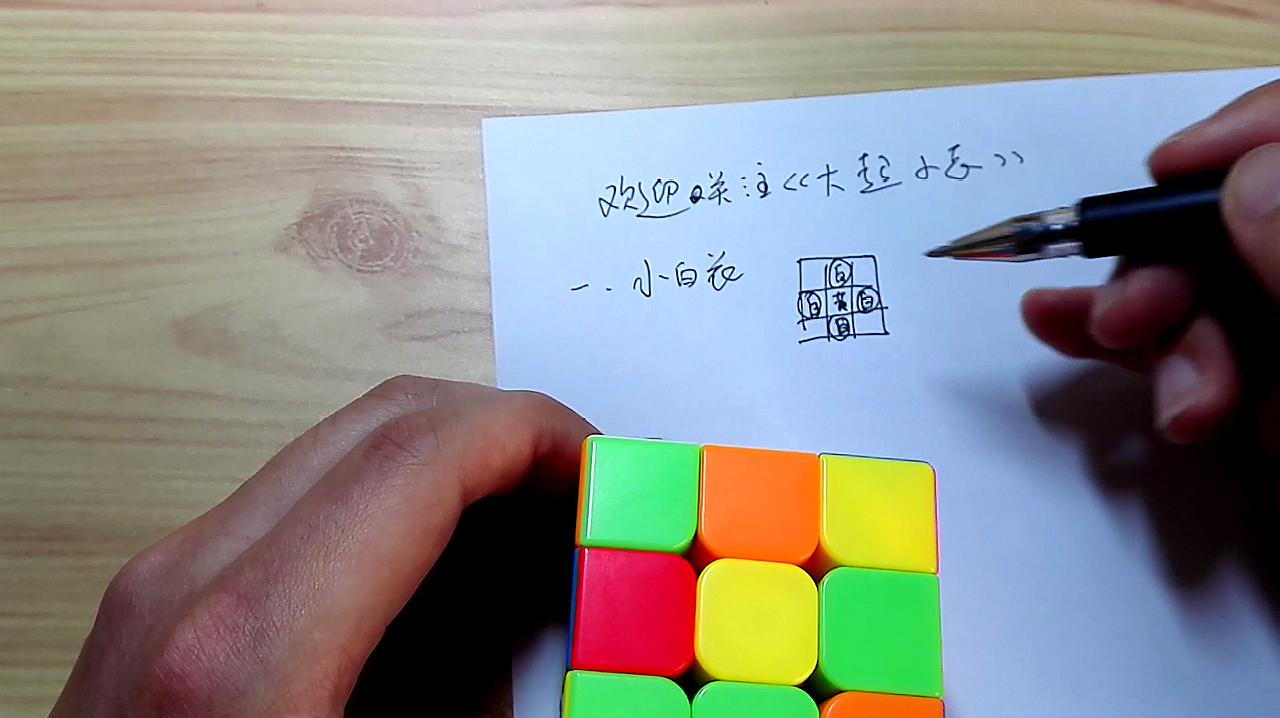 欢迎关注<<大 小 >>
一. 小白花
白
白 黄 白
白